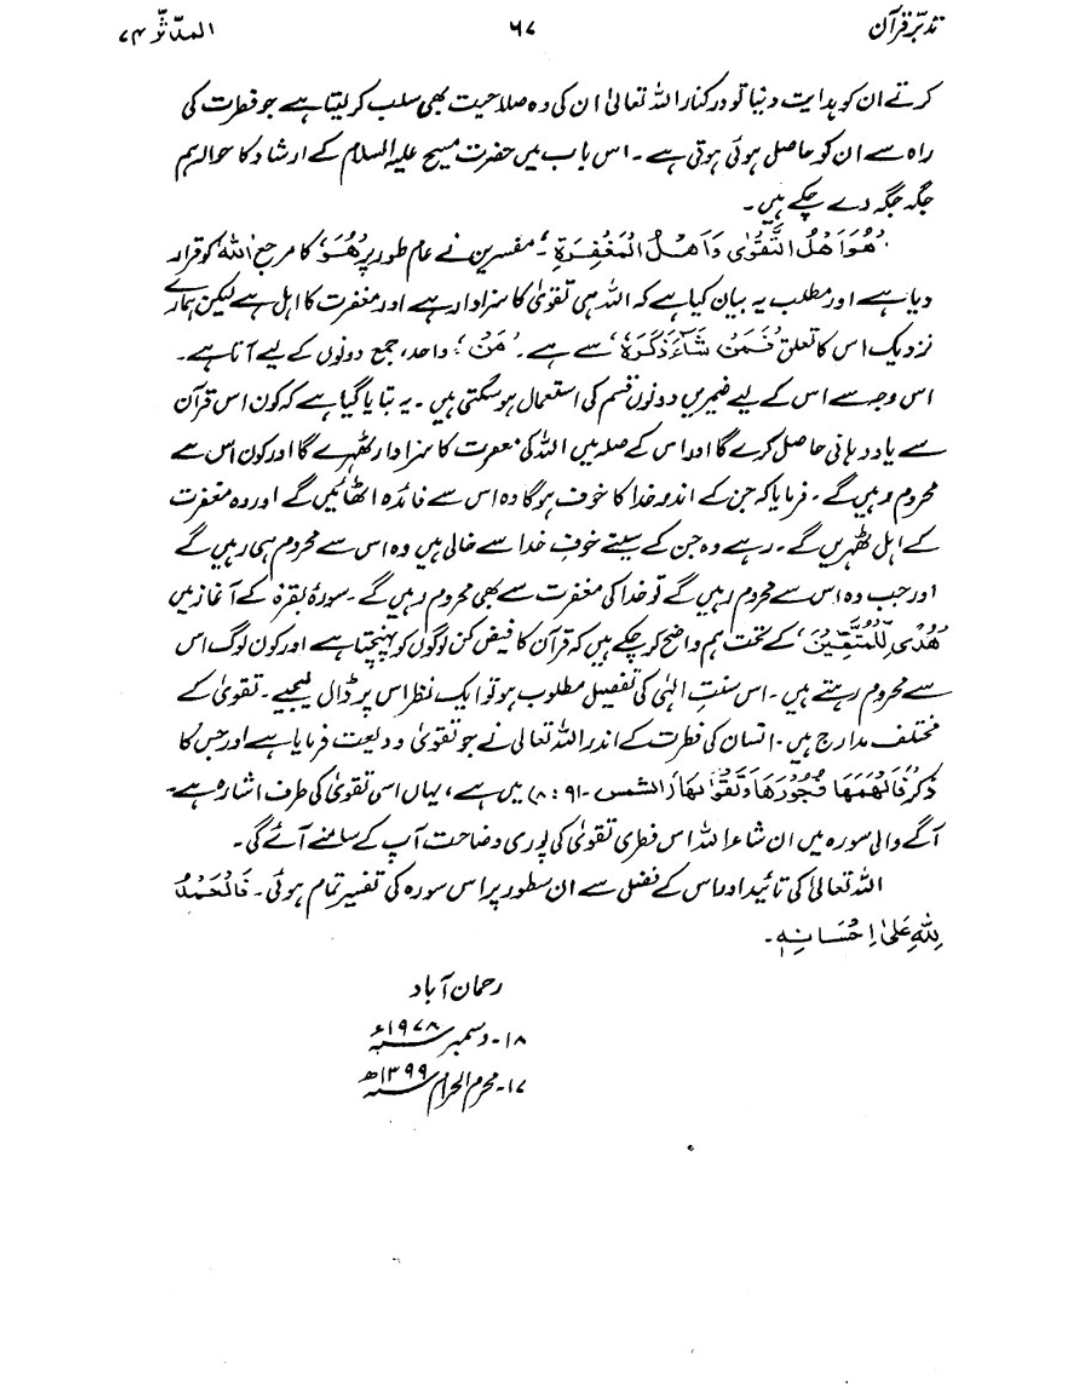 تدبّر قرآن ۶۷ المدّثّر ۷۴
کرتے ان کو ہدایت دنیا تو درکنار اللہ تعالیٰ ان کی وہ صلاحیت بھی سلب کر لیتا ہے جو فطرت کی
راہ سے ان کو حاصل ہوئی ہوتی ہے ۔ اس باب میں حضرت مسیح علیہ السلام کے ارشاد کا حوالہ ہم
جگہ جگہ دے چکے ہیں ۔
'هُوَ اَهْلُ التَّقْوٰى وَاَهْلُ الْمَغْفِرَةِ'۔ مفسرین نے عام طور پر 'هُوَ' کا مرجع 'اللہ' کو قرار
دیا ہے اور مطلب یہ بیان کیا ہے کہ اللہ ہی تقویٰ کا سزاوار ہے اور مغفرت کا اہل ہے لیکن ہمارے
نزدیک اس کا تعلق 'فَمَنْ شَآءَ ذَكَرَهٗ' سے ہے ۔ 'مَنْ'، واحد، جمع دونوں کے لیے آتا ہے ۔
اس وجہ سے اس کے لیے ضمیریں دونوں قسم کی استعمال ہو سکتی ہیں ۔ یہ بتایا گیا ہے کہ کون اس قرآن
سے یاددہانی حاصل کرے گا اور اس کے صلہ میں اللہ کی معرت کا سزاوار ٹھہرے گا اور کون اس سے
محروم رہیں گے ۔ فرمایا کہ جن کے اندر خدا کا خوف ہوگا وہ اس سے فائدہ اٹھائیں گے اور وہ مغفرت
کے اہل ٹھہریں گے ۔ رہے وہ جن کے سینے خوفِ خدا سے خالی ہیں وہ اس سے محروم ہی رہیں گے
اور جب وہ اس سے محروم رہیں گے تو خدا کی مغفرت سے بھی محروم رہیں گے ۔ سورۂ بقرہ کے آغاز میں
'هُدًى لِّلْمُتَّقِيْنَ' کے تحت ہم واضح کر چکے ہیں کہ قرآن کا فیض کن لوگوں کو پہنچتا ہے اور کون لوگ اس
سے محروم رہتے ہیں ۔ اس سنتِ الہٰی کی تفصیل مطلوب ہو تو ایک نظر اس پر ڈال لیجیے ۔ تقویٰ کے
مختلف مدارج ہیں ۔ انسان کی فطرت کے اندر اللہ تعالیٰ نے جو تقویٰ ودیعت فرمایا ہے اور جس کا
ذکر 'فَاَلْهَمَهَا فُجُوْرَهَا وَتَقْوٰىهَا' (الشمس ۔ ۹۱ : ۸) میں ہے، یہاں اسی تقویٰ کی طرف اشارہ ہے ۔
آگے والی سورہ میں ان شاء اللہ اس فطری تقویٰ کی پوری وضاحت آپ کے سامنے آئے گی ۔
اللہ تعالیٰ کی تائید اور اس کے فضل سے ان سطور پر اس سورہ کی تفسیر تمام ہوئی ۔ فَالْحَمْدُ
لِلّٰهِ عَلٰى اِحْسَانِهٖ ۔
رحمان آباد
۱۸ ۔ دسمبر سنہ ۱۹۷۸ء
۱۷ ۔ محرم الحرام سنہ ۱۳۹۹ھ